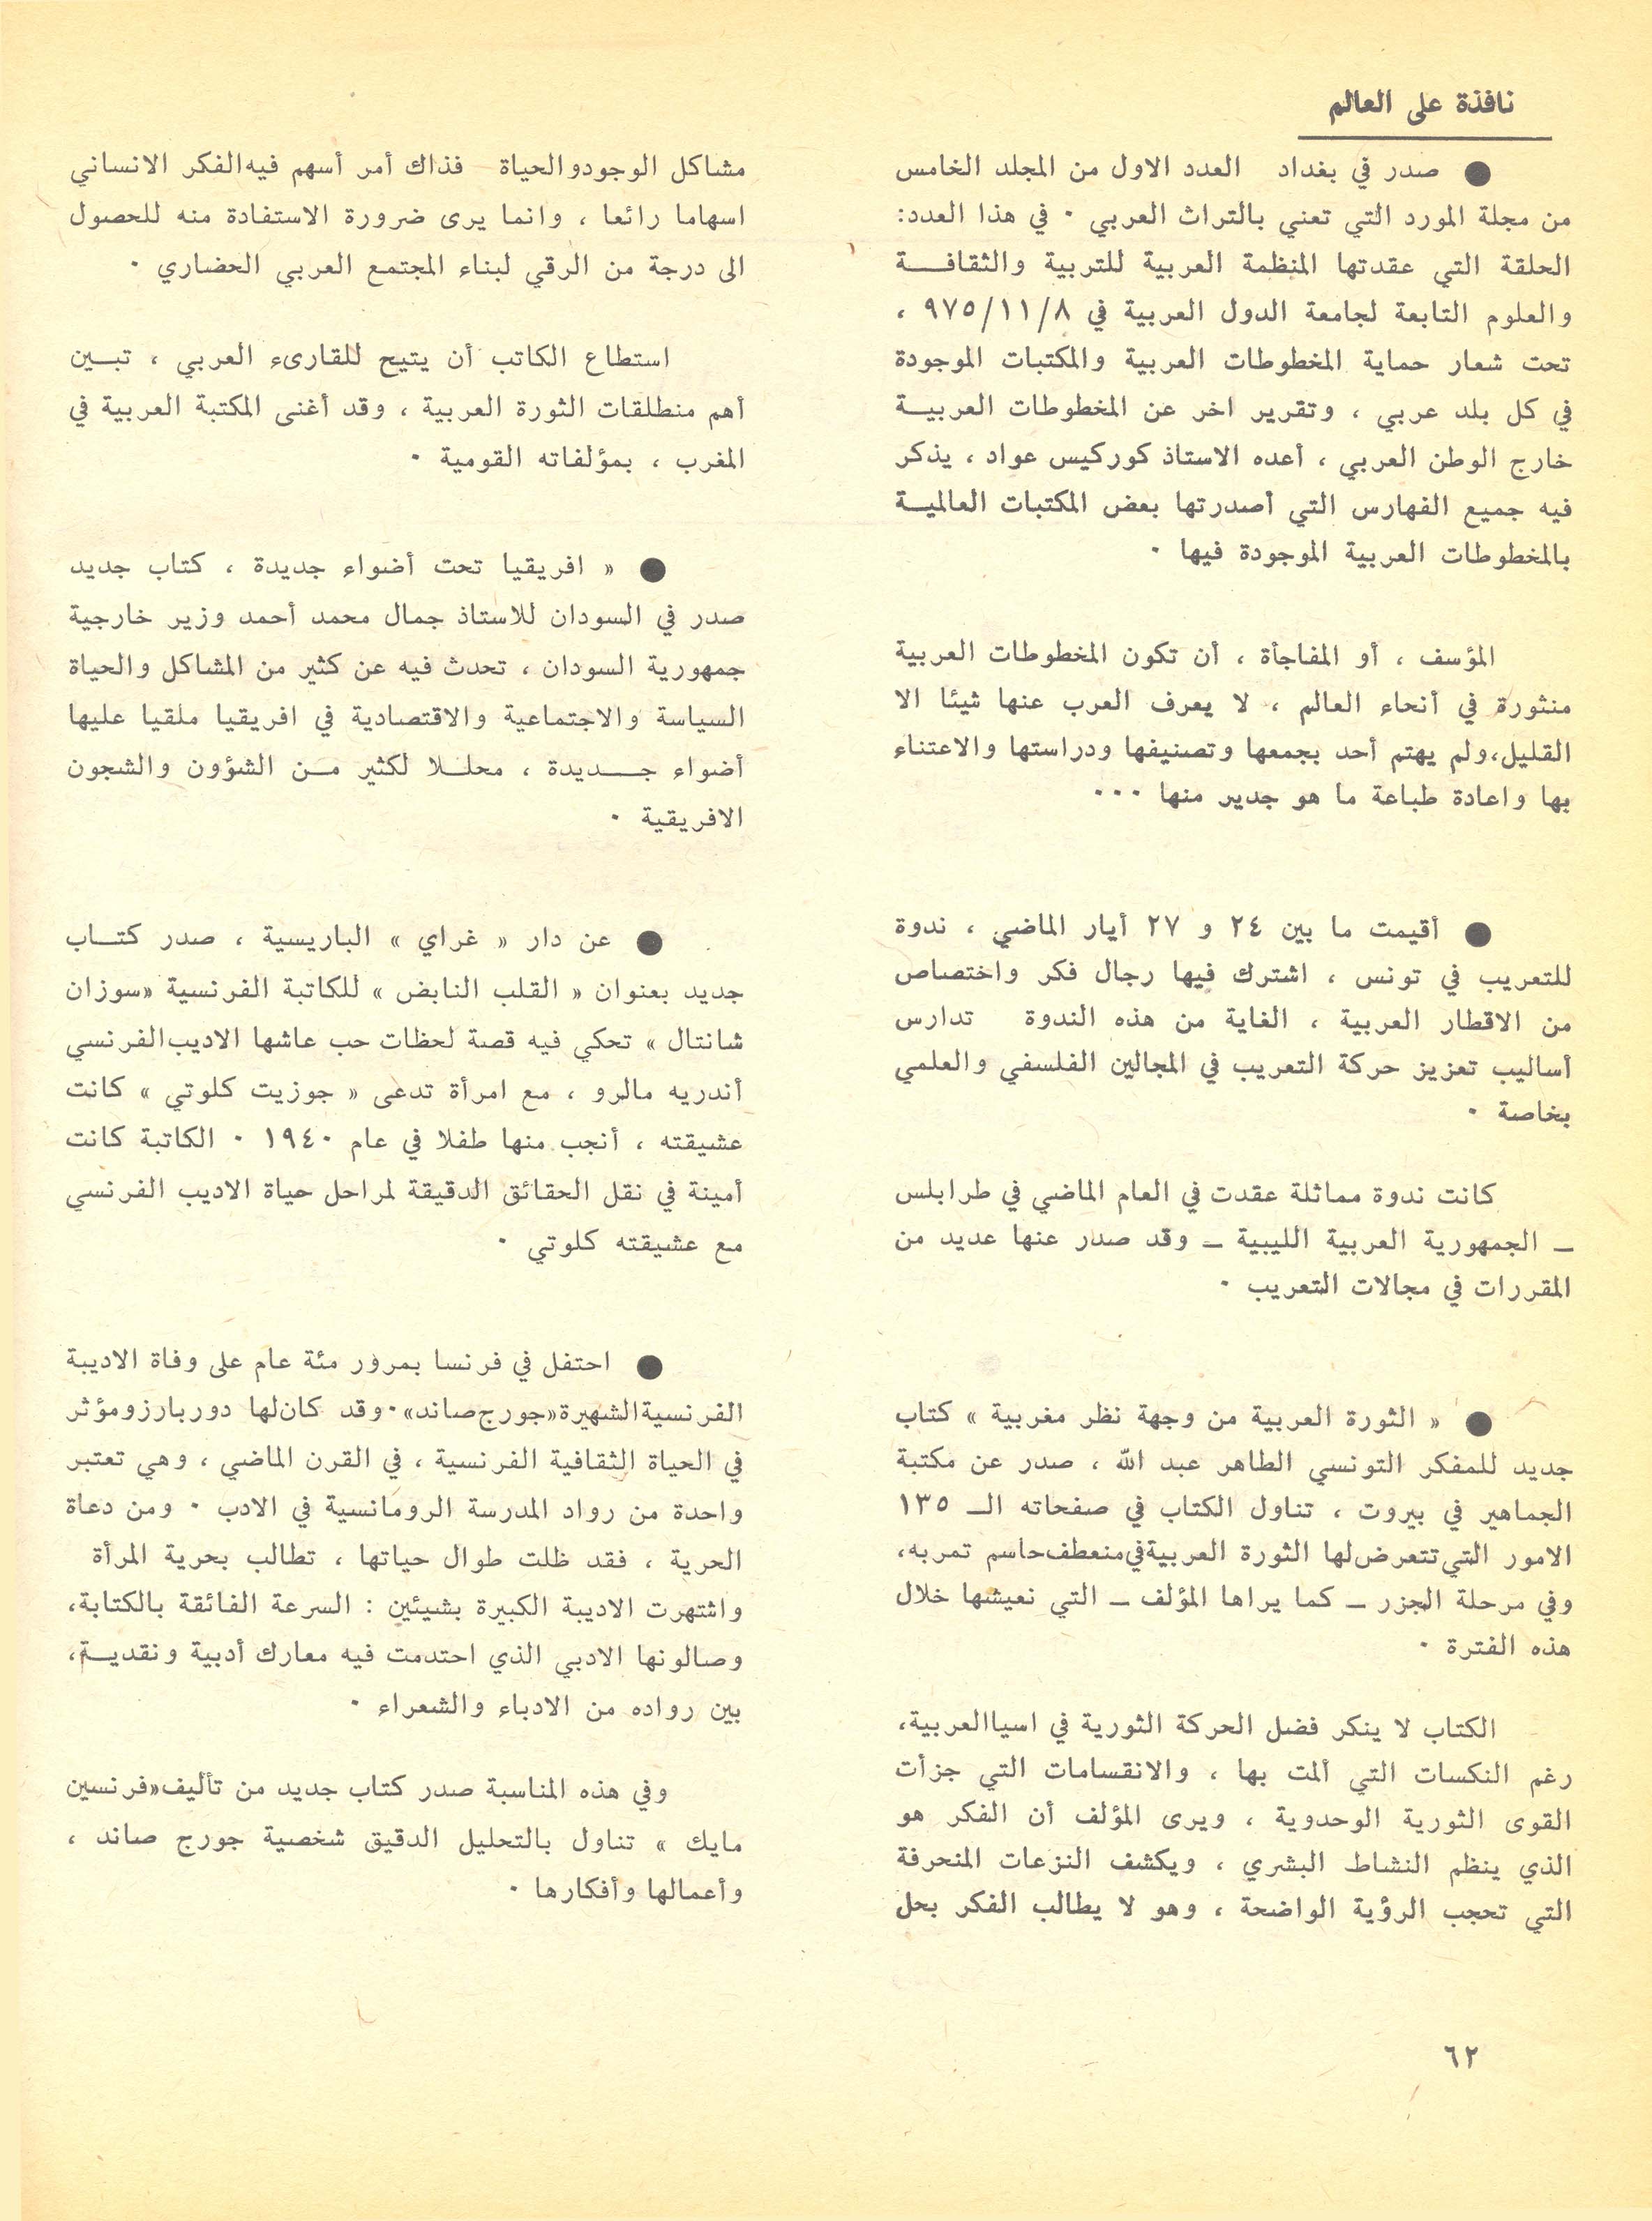 نافذة على العالم
● صدر في بغداد العدد الاول من المجلد الخامس
من مجلة المورد التي تعني بالتراث العربي ٠ في هذا العدد:
الحلقة التي عقدتها المنظمة العربية للتربية والثقافة
والعلوم التابعة لجامعة الدول العربية في ٩٧٥/١١/٨ ،
تحت شعار حماية المخطوطات العربية والمكتبات الموجودة
في كل بلد عربي ، وتقرير اخر عن المخطوطات العربية
خارج الوطن العربي ، أعده الاستاذ كوركيس عواد ، يذكر
فيه جميع الفهارس التي أصدرتها بعض المكتبات العالمية
بالمخطوطات العربية الموجودة فيها ٠
المؤسف ، أو المفاجأة ، أن تكون المخطوطات العربية
منثورة في أنحاء العالم ، لا يعرف العرب عنها شيئا الا
القليل،ولم يهتم أحد بجمعها وتصنيفها ودراستها والاعتناء
بها واعادة طباعة ما هو جدير منها ٠٠٠
● أقيمت ما بين ٢٤ و ٢٧ أيار الماضي ، ندوة
للتعريب في تونس ، اشترك فيها رجال فكر واختصاص
من الاقطار العربية ، الغاية من هذه الندوة تدارس
أساليب تعزيز حركة التعريب في المجالين الفلسفي والعلمي
بخاصة ٠
كانت ندوة مماثلة عقدت في العام الماضي في طرابلس
ــ الجمهورية العربية الليبية ــ وقد صدر عنها عديد من
المقررات في مجالات التعريب ٠
● « الثورة العربية من وجهة نظر مغربية » كتاب
جديد للمفكر التونسي الطاهر عبد الله ، صدر عن مكتبة
الجماهير في بيروت ، تناول الكتاب في صفحاته الـ ١٣٥
الامور التي تتعرض لها الثورة العربية في منعطف حاسم تمر به،
وفي مرحلة الجزر ــ كما يراها المؤلف ــ التي نعيشها خلال
هذه الفترة ٠
الكتاب لا ينكر فضل الحركة الثورية في اسيا العربية،
رغم النكسات التي ألمت بها ، والانقسامات التي جزأت
القوى الثورية الوحدوية ، ويرى المؤلف أن الفكر هو
الذي ينظم النشاط البشري ، ويكشف النزعات المنحرفة
التي تحجب الرؤية الواضحة ، وهو لا يطالب الفكر بحل
مشاكل الوجود والحياة فذاك أمر أسهم فيه الفكر الانساني
اسهاما رائعا ، وانما يرى ضرورة الاستفادة منه للحصول
الى درجة من الرقي لبناء المجتمع العربي الحضاري ٠
استطاع الكاتب أن يتيح للقارىء العربي ، تبين
أهم منطلقات الثورة العربية ، وقد أغنى المكتبة العربية في
المغرب ، بمؤلفاته القومية ٠
● « افريقيا تحت أضواء جديدة ، كتاب جديد
صدر في السودان للاستاذ جمال محمد أحمد وزير خارجية
جمهورية السودان ، تحدث فيه عن كثير من المشاكل والحياة
السياسة والاجتماعية والاقتصادية في افريقيا ملقيا عليها
أضواء جديدة ، محللا لكثير من الشؤون والشجون
الافريقية ٠
● عن دار « غراي » الباريسية ، صدر كتاب
جديد بعنوان « القلب النابض » للكاتبة الفرنسية «سوزان
شانتال » تحكي فيه قصة لحظات حب عاشها الاديب الفرنسي
أندريه مالرو ، مع امرأة تدعى « جوزيت كلوتي » كانت
عشيقته ، أنجب منها طفلا في عام ١٩٤٠ ٠ الكاتبة كانت
أمينة في نقل الحقائق الدقيقة لمراحل حياة الاديب الفرنسي
مع عشيقته كلوتي ٠
● احتفل في فرنسا بمرور مئة عام على وفاة الاديبة
الفرنسية الشهيرة «جورج صاند»٠ وقد كان لها دور بارز ومؤثر
في الحياة الثقافية الفرنسية ، في القرن الماضي ، وهي تعتبر
واحدة من رواد المدرسة الرومانسية في الادب ٠ ومن دعاة
الحرية ، فقد ظلت طوال حياتها ، تطالب بحرية المرأة
واشتهرت الاديبة الكبيرة بشيئين : السرعة الفائقة بالكتابة،
وصالونها الادبي الذي احتدمت فيه معارك أدبية ونقدية،
بين رواده من الادباء والشعراء ٠
وفي هذه المناسبة صدر كتاب جديد من تأليف «فرنسين
مايك » تناول بالتحليل الدقيق شخصية جورج صاند ،
وأعمالها وأفكارها ٠
٦٢